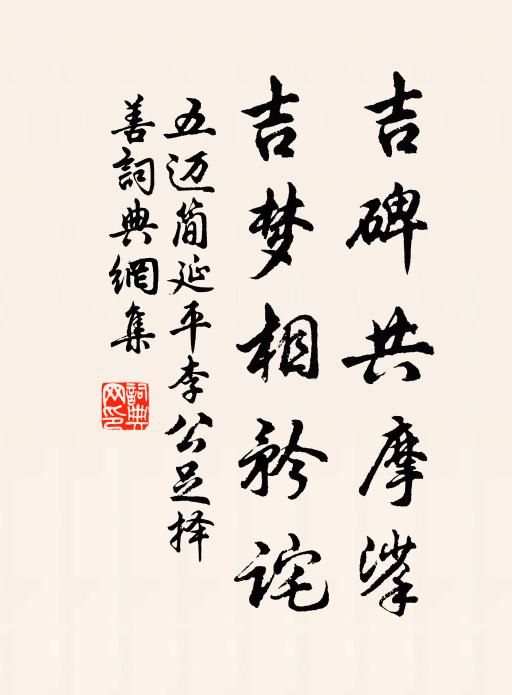 吉碑共摩挲
吉梦相矜诧
五迈简延平李公足择
善詞典網集
詞典網印